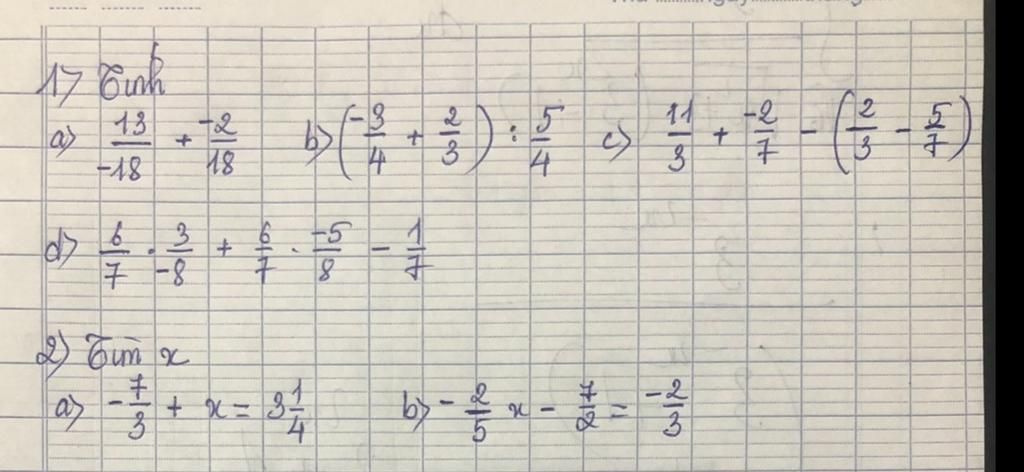 1) Tính
a) 13/-18 + -2/18 b) (-3/4 + 2/3) : 5/4 c) 11/3 + -2/7 - (2/3 - 5/7)
d) 6/7 . 3/-8 + 6/7 . -5/8 - 1/7
2) Tìm x
a) -7/3 + x = 3 1/4 b) -2/5 x - 7/2 = -2/3